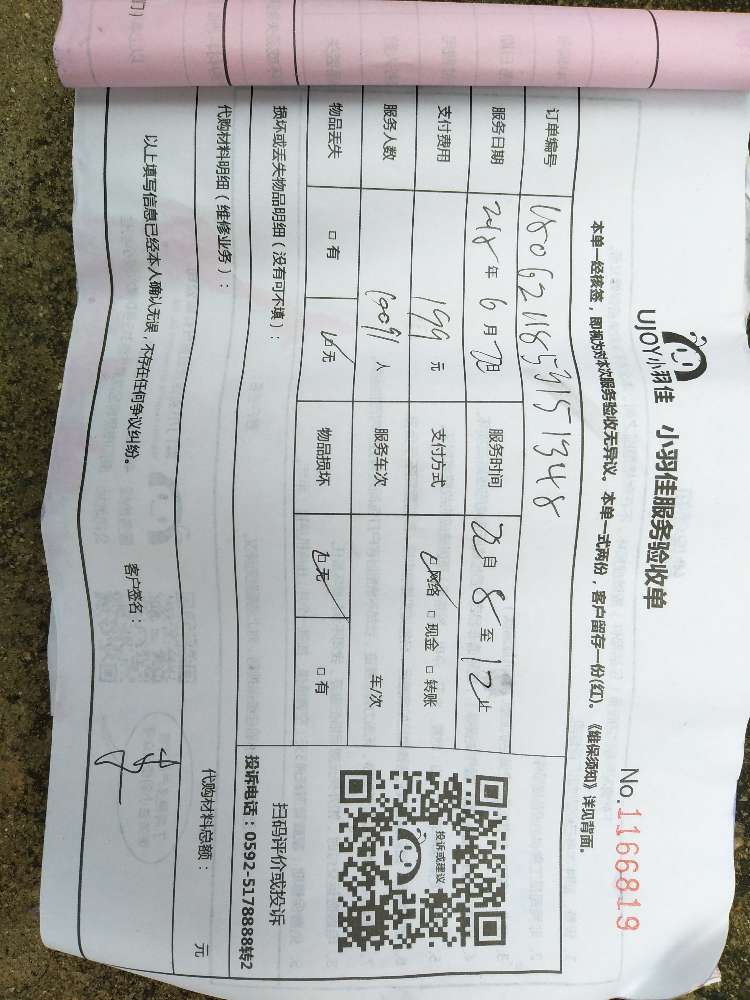 UJOY小羽佳 小羽佳服务验收单
No.1166819
本单一经核签，即视为对本次服务验收无异议。本单一式两份，客户留存一份(红)。《维保须知》详见背面。
订单编号
服务日期 年 6 月 日 服务时间 自 8 至 12 止
支付费用 199 元 支付方式 □网络 □现金 □转账
服务人数 人 服务车次 车/次
物品丢失 □有 □无 物品损坏 □无 □有
损坏或丢失物品明细（没有可不填）：
投诉或建议
扫码评价或投诉
投诉电话：0592-5178888转2
代购材料明细（维修业务）： 代购材料总额： 元
以上填写信息已经本人确认无误，不存在任何争议纠纷。 客户签名：